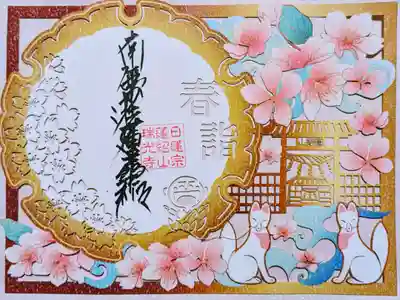 南無妙法蓮華経
春詣
日蓮宗
蓮紹山
瑞光寺